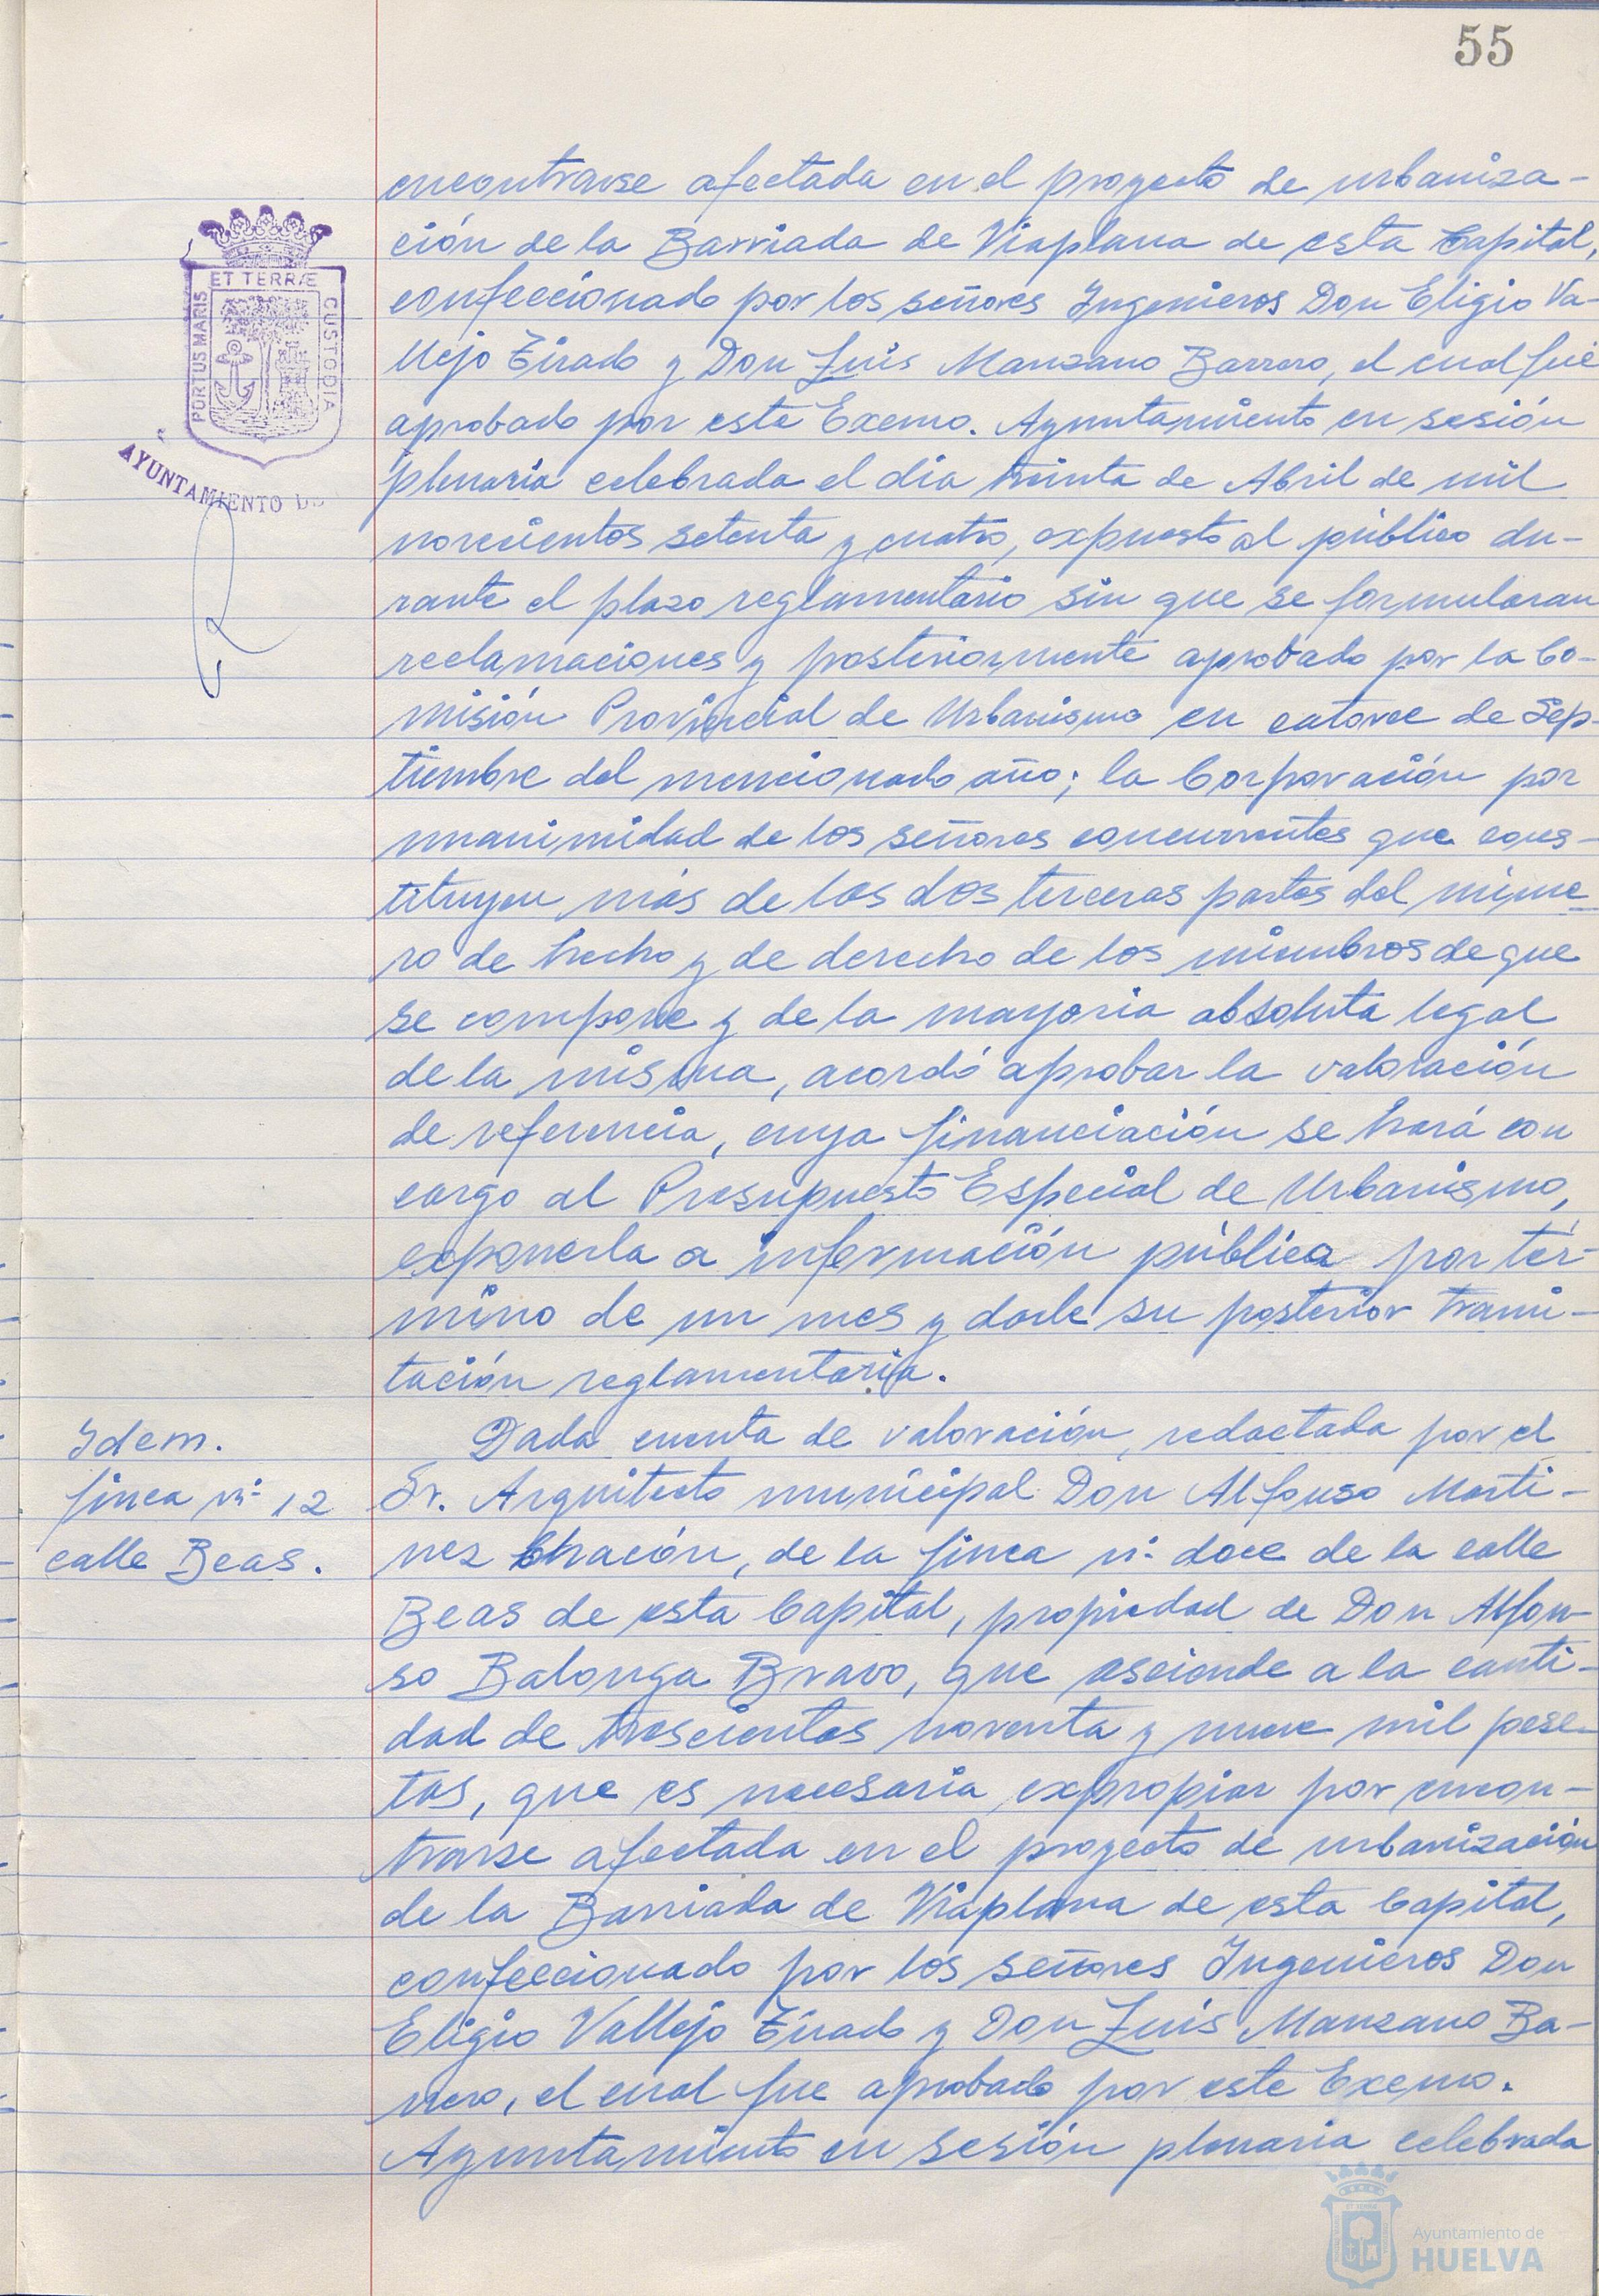 55
encontrarse afectada en el proyecto de urbaniza-
ción de la Barriada de Viaplana de esta Capital,
confeccionado por los señores Ingenieros Don Eligio Va-
llejo Tirado y Don Luis Manzano Barrero, el cual fué
aprobado por este Excmo. Ayuntamiento en sesión
plenaria celebrada el día treinta de Abril de mil
novecientos setenta y cuatro, expuesto al público du-
rante el plazo reglamentario sin que se formularan
reclamaciones y posteriormente aprobado por la Co-
misión Provincial de Urbanismo en catorce de Sep-
tiembre del mencionado año; la Corporación por
unanimidad de los señores concurrentes que cons-
tituyen más de las dos terceras partes del núme-
ro de hecho y de derecho de los miembros de que
se compone y de la mayoria absoluta legal
de la misma, acordó aprobar la valoración
de referencia, cuya financiación se hará con
cargo al Presupuesto Especial de Urbanismo,
exponerla a información pública por tér-
mino de un mes y darle su posterior trami-
tación reglamentaria.
Dada cuenta de valoración, redactada por el
Sr. Arquitecto municipal Don Alfonso Marti-
nez Chacón, de la finca nº doce de la calle
Beas de esta Capital, propiedad de Don Alfon-
so Balonga Bravo, que asciende a la canti-
dad de trescientas noventa y nueve mil pese-
tas, que es necesaria expropiar por encon-
trarse afectada en el proyecto de urbanización
de la Barriada de Viaplana de esta Capital,
confeccionado por los señores Ingenieros Don
Eligio Vallejo Tirado y Don Luis Manzano Ba-
rrero, el cual fue aprobado por este Excmo.
Ayuntamiento en sesión plenaria celebrada
Idem.
finca nº 12
calle Beas.
PORTUS MARIS
ET TERRÆ
CUSTODIA
AYUNTAMIENTO DE
Ayuntamiento de
HUELVA